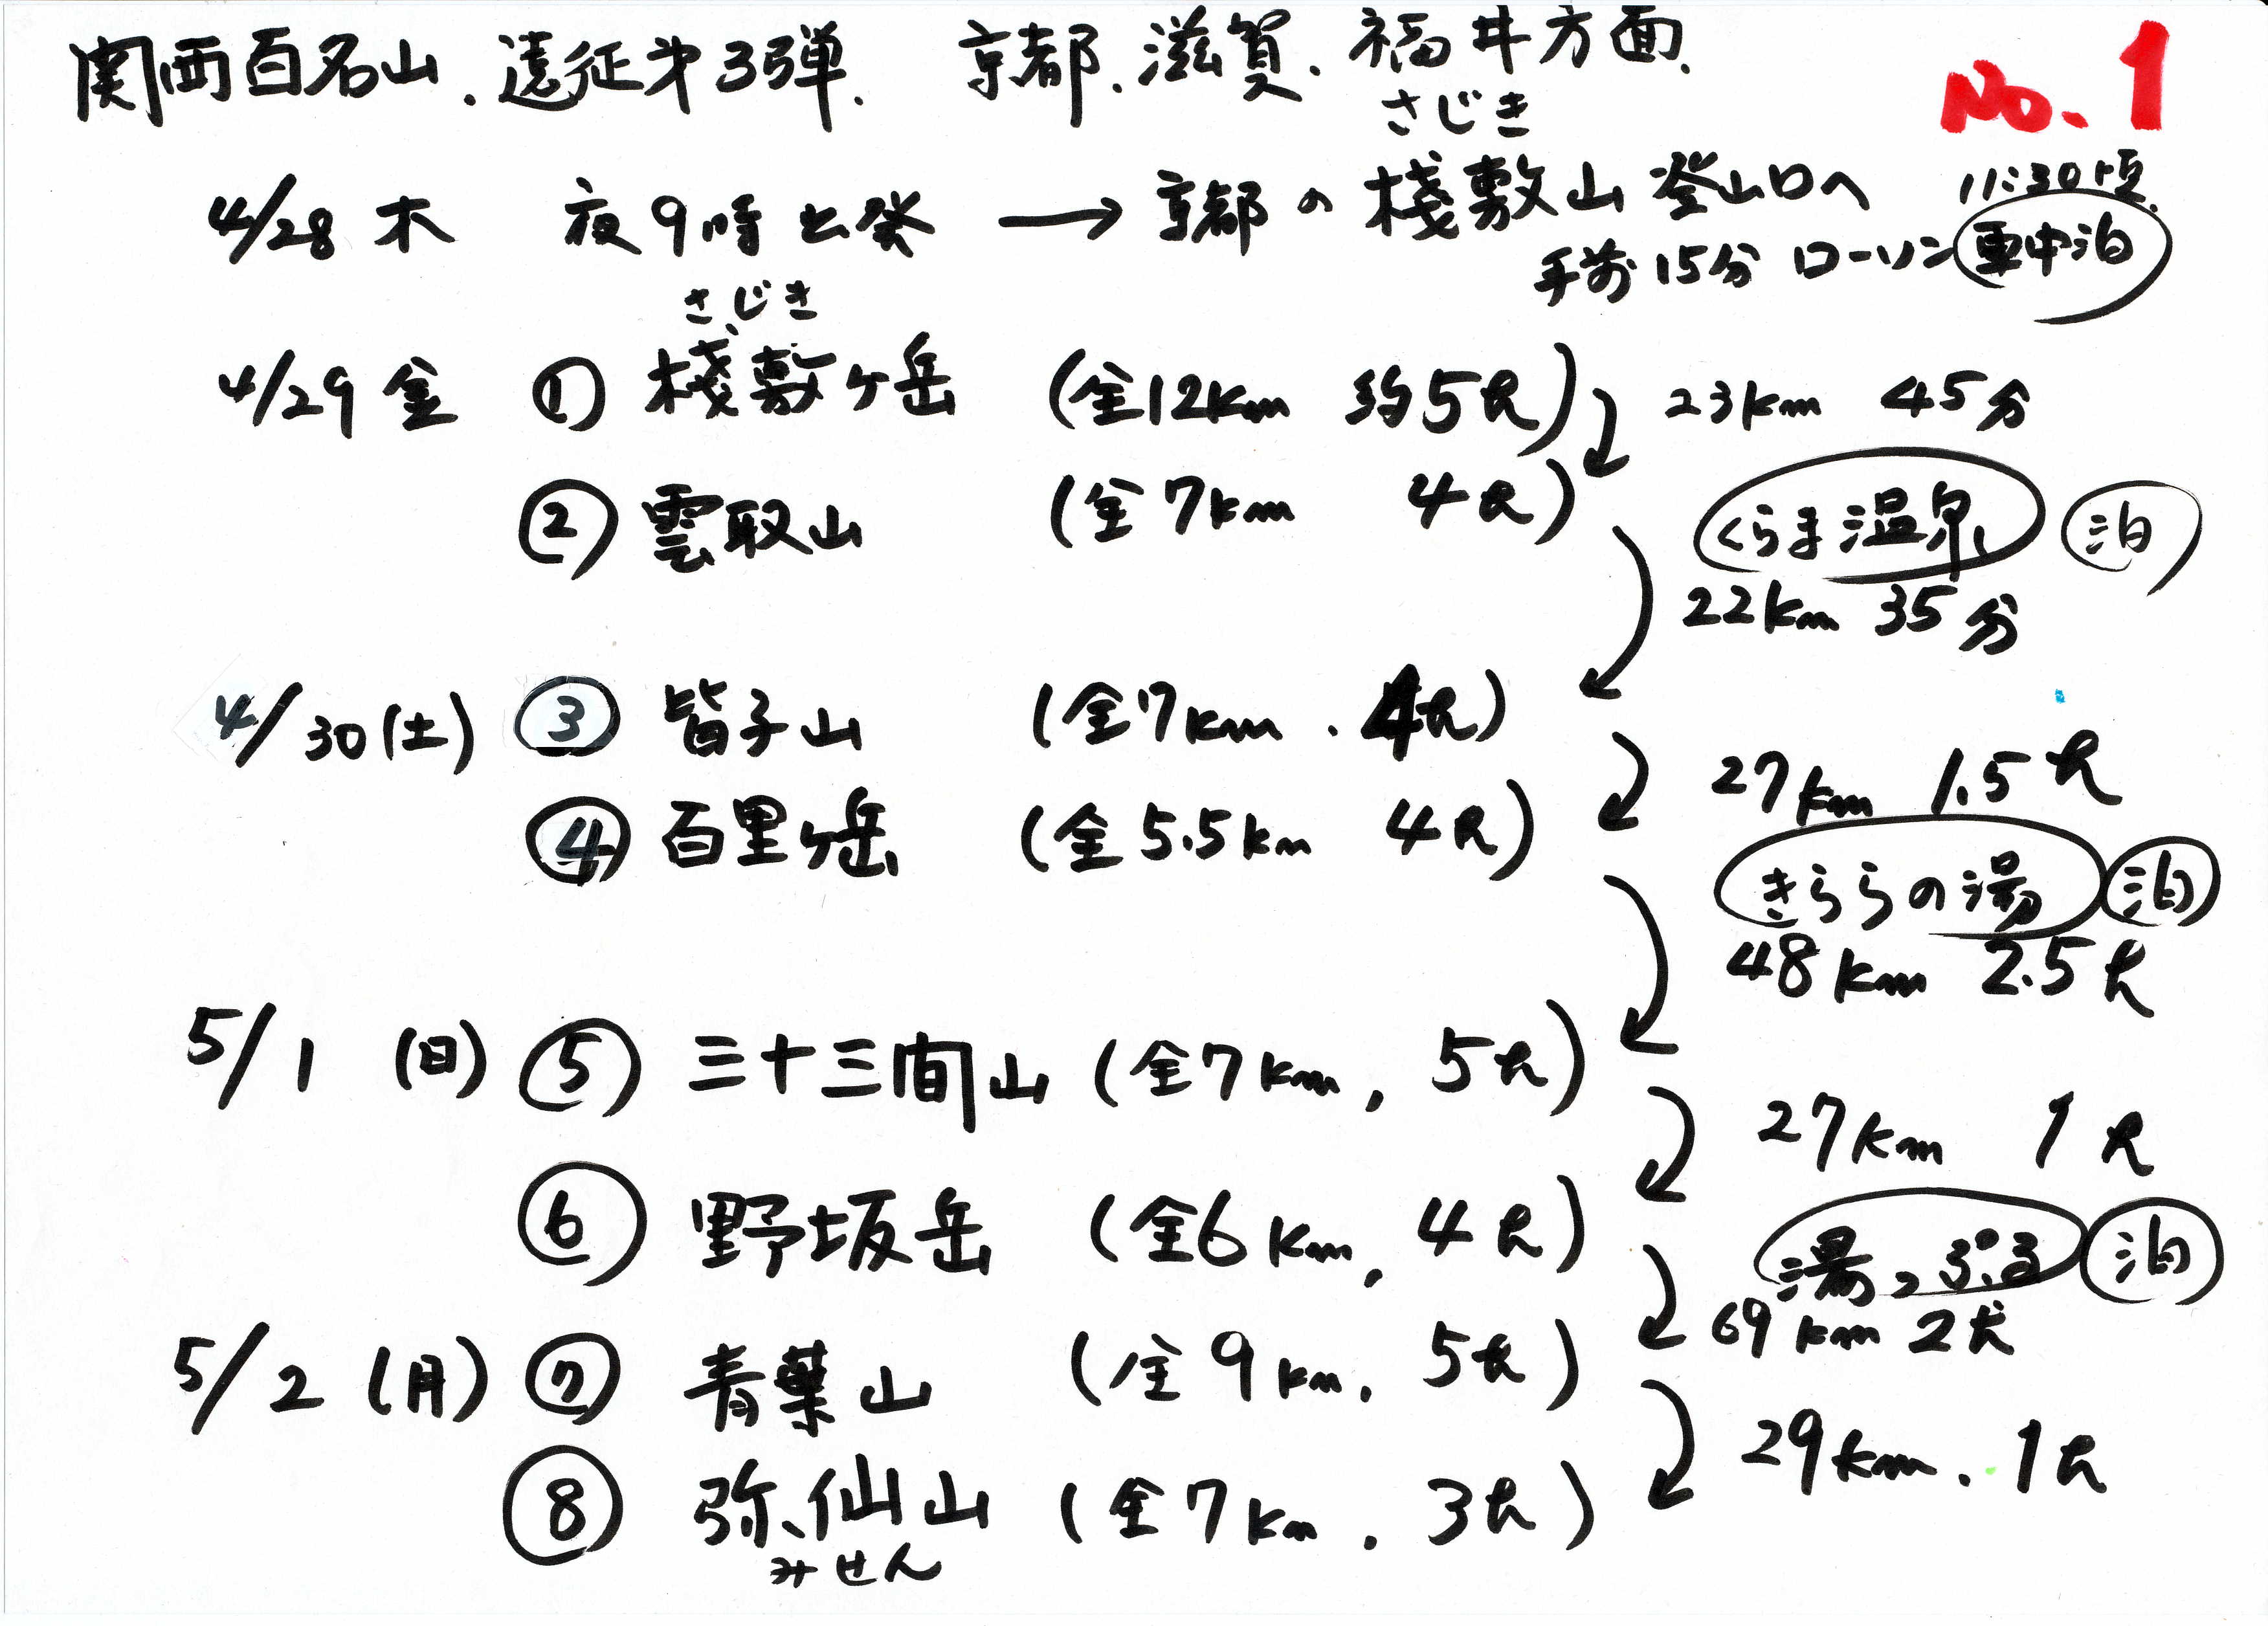 関西百名山、遠征第3弾、 京都、滋賀、福井方面、
No.1
さじき
4/28 木 夜9時出発 → 京都の桟敷山登山口へ 11:30頃
手前15分 ローソン 車中泊
さじき
4/29 金 ① 桟敷ヶ岳 (全12km 約5h) 23km 45分
② 雲取山 (全7km 4h) くらま温泉 泊
22km 35分
4/30(土) ③ 皆子山 (全7km、4h)
27km 1.5h
④ 百里ヶ岳 (全5.5km 4h) きららの湯 泊
48km 2.5h
5/1 (日) ⑤ 三十三間山 (全7km, 5h)
27km 1h
⑥ 野坂岳 (全6km, 4h) 湯っぷる 泊
69km 2h
5/2 (月) ⑦ 青葉山 (全9km, 5h)
29km、1h
⑧ 弥仙山 (全7km、3h)
みせん